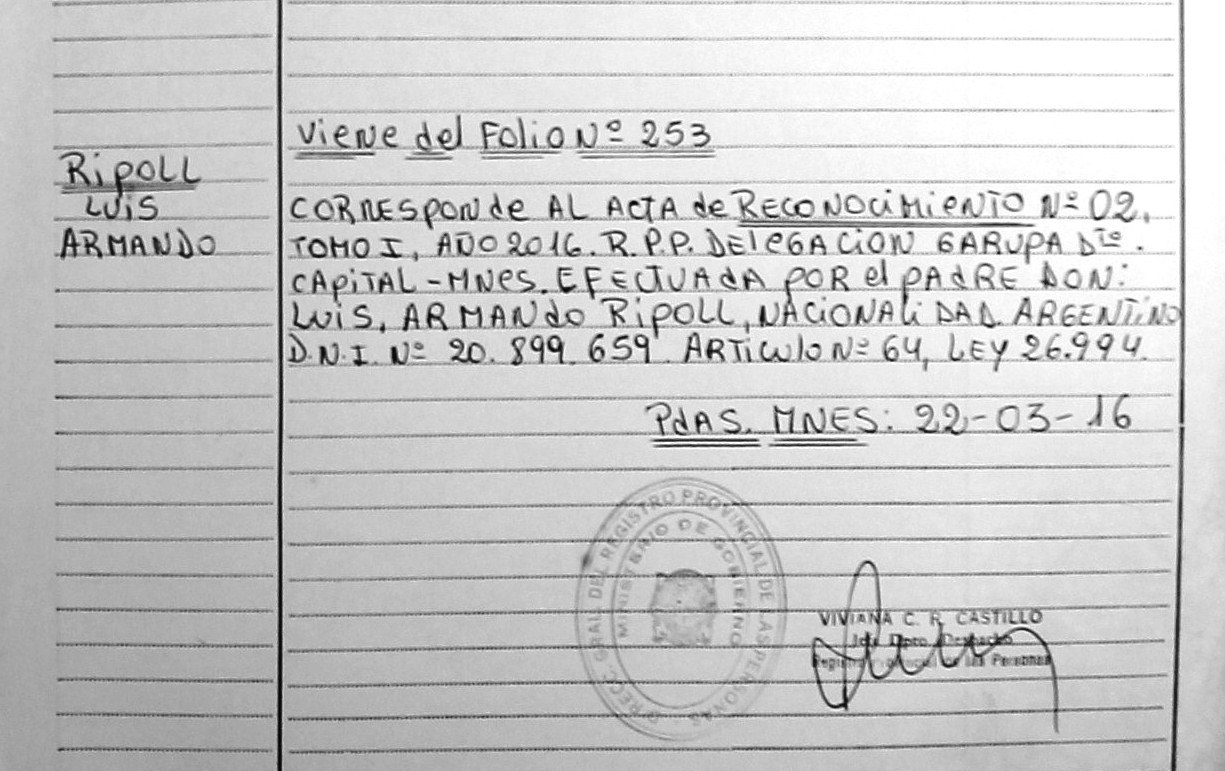 Viene del Folio Nº 253
Ripoll
Luis
ARMANDO
CORRESponde AL ACTA de RECONOCiMiENTO Nº 02,
TOMO I, AÑO 2016. R.P.P. DELEGACION GARUPA Dto.
CAPITAL-MNES. EFECTUADA POR el PADRE DON:
Luis, ARMANdo Ripoll, NACIONALiDAD. ARGENTiNO
D.N.I. Nº 20.899.659. ARTiculo Nº 64, LEY 26.994.
PdAS. MNES: 22-03-16
DIRECC. GRAL. DEL REGISTRO PROVINCIAL DE LAS PERSONAS
MINISTERIO DE GOBIERNO
VIVIANA C. R. CASTILLO
Jefe Dpto. Despacho
Registro Provincial de las Personas